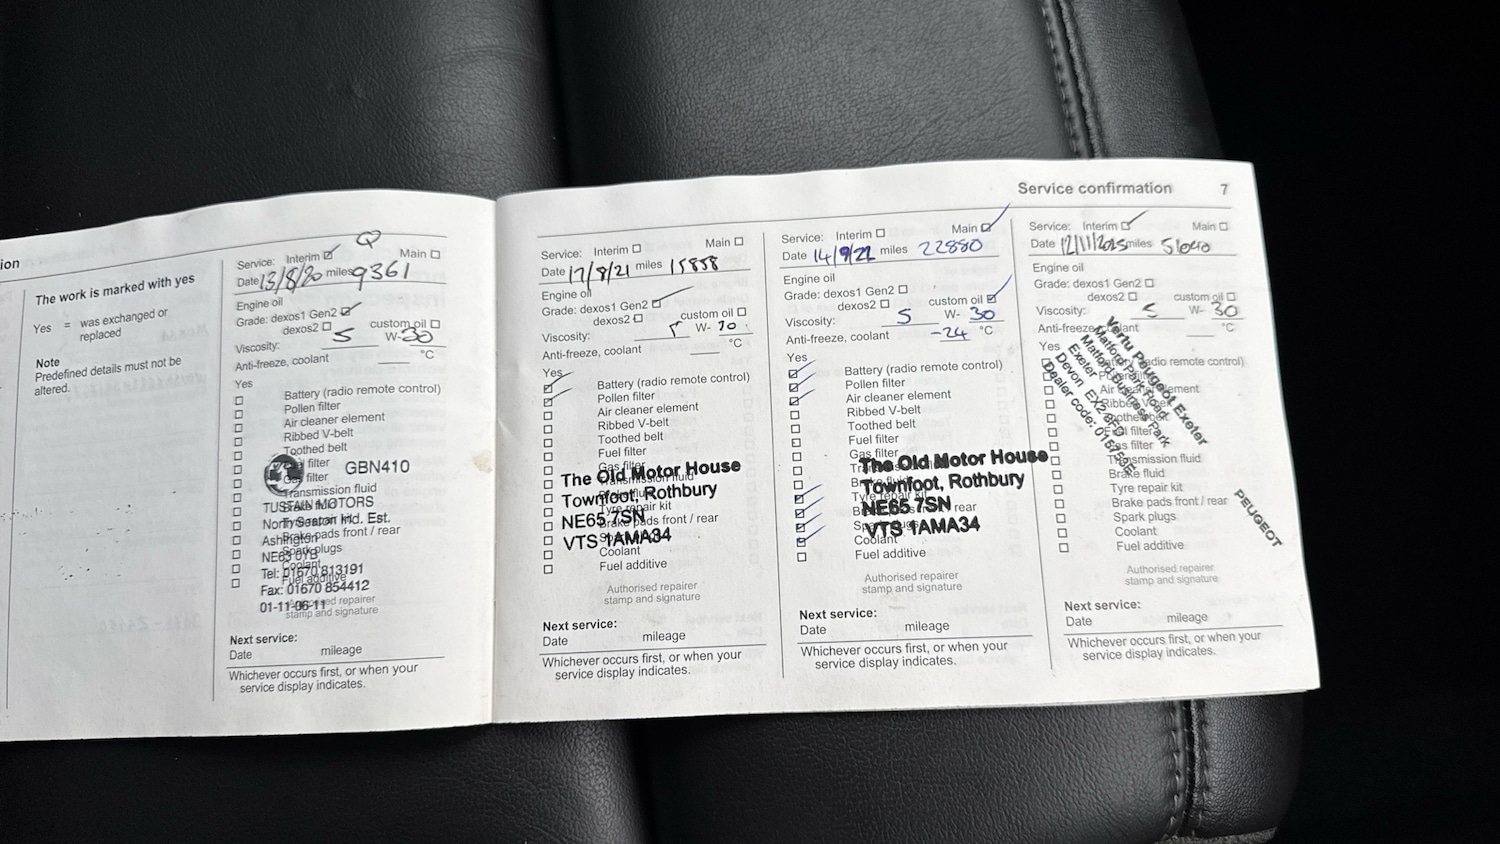 ion
The work is marked with yes
Yes = was exchanged or
replaced
Note
Predefined details must not be
altered.
Service: Interim Main
Date 13/8/20 miles 9361
Engine oil
Grade: dexos1 Gen2
dexos2 custom oil
Viscosity: 5 W- 30
Anti-freeze, coolant °C
Yes
Battery (radio remote control)
Pollen filter
Air cleaner element
Ribbed V-belt
Toothed belt
filter
filter
Transmission fluid
Brake pads front / rear
Spark plugs
Authorised repairer
stamp and signature
GBN410
TUSTAIN MOTORS
North Seaton Ind. Est.
Ashington
NE63 0YB
Tel: 01670 813191
Fax: 01670 854412
01-11-06-11
Next service:
Date mileage
Whichever occurs first, or when your
service display indicates.
Service: Interim Main
Date 17/8/21 miles 15858
Engine oil
Grade: dexos1 Gen2
dexos2 custom oil
Viscosity: W-
Anti-freeze, coolant °C
Yes
Battery (radio remote control)
Pollen filter
Air cleaner element
Ribbed V-belt
Toothed belt
Fuel filter
Gas filter
Transmission fluid
Brake fluid
Tyre repair kit
Brake pads front / rear
Spark plugs
Coolant
Fuel additive
The Old Motor House
Townfoot, Rothbury
NE65 7SN
VTS 1AMA34
Authorised repairer
stamp and signature
Next service:
Date mileage
Whichever occurs first, or when your
service display indicates.
Service: Interim Main
Date 14/9/22 miles 22880
Engine oil
Grade: dexos1 Gen2
dexos2 custom oil
Viscosity: 5 W- 30
Anti-freeze, coolant -24 °C
Yes
Battery (radio remote control)
Pollen filter
Air cleaner element
Ribbed V-belt
Toothed belt
Fuel filter
Gas filter
Brake fluid
Tyre repair kit
Coolant
Fuel additive
The Old Motor House
Townfoot, Rothbury
NE65 7SN
VTS 1AMA34
Authorised repairer
stamp and signature
Next service:
Date mileage
Whichever occurs first, or when your
service display indicates.
Service confirmation 7
Service: Interim Main
Date 12/11/2025 miles
Engine oil
Grade: dexos1 Gen2
dexos2 custom oil
Viscosity: 5 W- 30
Anti-freeze, coolant °C
Yes
(radio remote control)
Air cleaner element
Ribbed
Toothed belt
Fuel filter
Gas filter
Transmission fluid
Brake fluid
Tyre repair kit
Brake pads front / rear
Spark plugs
Coolant
Fuel additive
Vertu Peugeot Exeter
Matford Park Road
Matford Business Park
Exeter
Devon EX2 8FD
Dealer code:
PEUGEOT
Authorised repairer
stamp and signature
Next service:
Date mileage
Whichever occurs first, or when your
service display indicates.